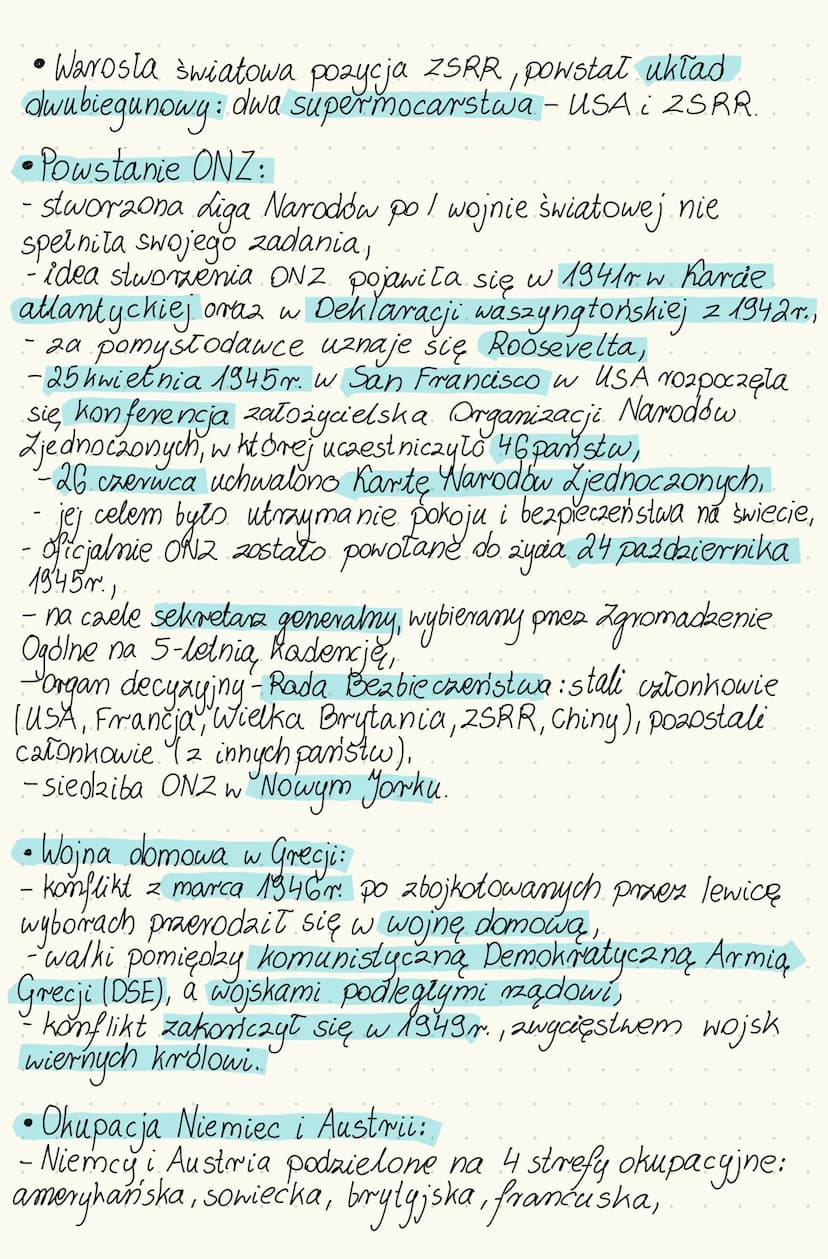 • Wzrosła światowa pozycja ZSRR, powstał układ
dwubiegunowy: dwa supermocarstwa - USA i ZSRR.
• Powstanie ONZ:
- stworzona Liga Narodów po I wojnie światowej nie
spełniła swojego zadania,
- idea stworzenia ONZ pojawiła się w 1941r. w Karcie
atlantyckiej oraz w Deklaracji waszyngtońskiej z 1942r.,
- za pomysłodawce uznaje się Roosevelta,
- 25 kwietnia 1945r. w San Francisco w USA rozpoczęła
się konferencja założycielska Organizacji Narodów
Zjednoczonych, w której uczestniczyło 46 państw,
- 26 czerwca uchwalono Kartę Narodów Zjednoczonych,
- jej celem było utrzymanie pokoju i bezpieczeństwa na świecie,
- oficjalnie ONZ zostało powołane do życia 24 października
1945r.,
- na czele sekretarz generalny, wybierany przez Zgromadzenie
Ogólne na 5-letnią kadencję,
- organ decyzyjny - Rada Bezpieczeństwa: stali członkowie
(USA, Francja, Wielka Brytania, ZSRR, Chiny), pozostali
członkowie (z innych państw),
- siedziba ONZ w Nowym Jorku.
• Wojna domowa w Grecji:
- konflikt z marca 1946r. po zbojkotowanych przez lewicę
wyborach przerodził się w wojnę domową,
- walki pomiędzy komunistyczną Demokratyczną Armią
Grecji (DSE), a wojskami podległymi rządowi,
- konflikt zakończył się w 1949r., zwycięstwem wojsk
wiernych królowi.
• Okupacja Niemiec i Austrii:
- Niemcy i Austria podzielone na 4 strefy okupacyjne:
amerykańska, sowiecka, brytyjska, francuska,